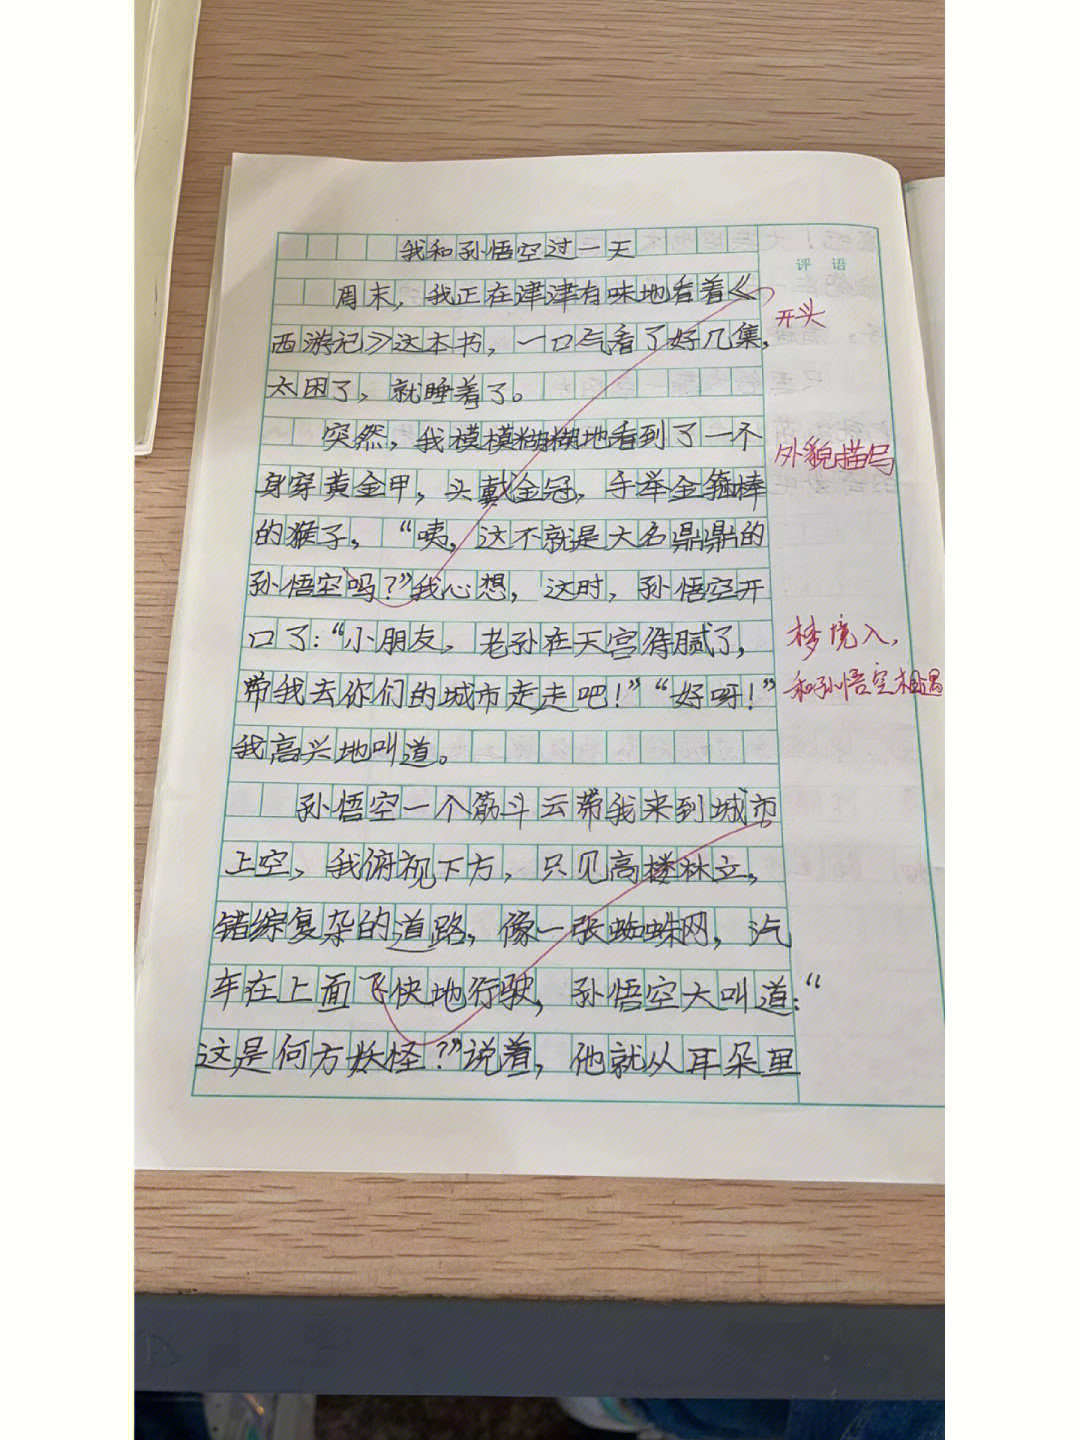 我和孙悟空过一天
评语
周末，我正在津津有味地看着《
开头
西游记》这本书，一口气看了好几集，
太困了，就睡着了。
突然，我模模糊糊地看到了一个
外貌描写
身穿黄金甲，头戴金冠，手举金箍棒
的猴子，“咦，这不就是大名鼎鼎的
孙悟空吗？”我心想，这时，孙悟空开
口了：“小朋友，老孙在天宫待腻了，
梦境入，
带我去你们的城市走走吧！”“好呀！”
和孙悟空相遇
我高兴地叫道。
孙悟空一个筋斗云带我来到城市
上空，我俯视下方，只见高楼林立，
错综复杂的道路，像一张蜘蛛网，汽
车在上面飞快地行驶，孙悟空大叫道：“
这是何方妖怪？”说着，他就从耳朵里